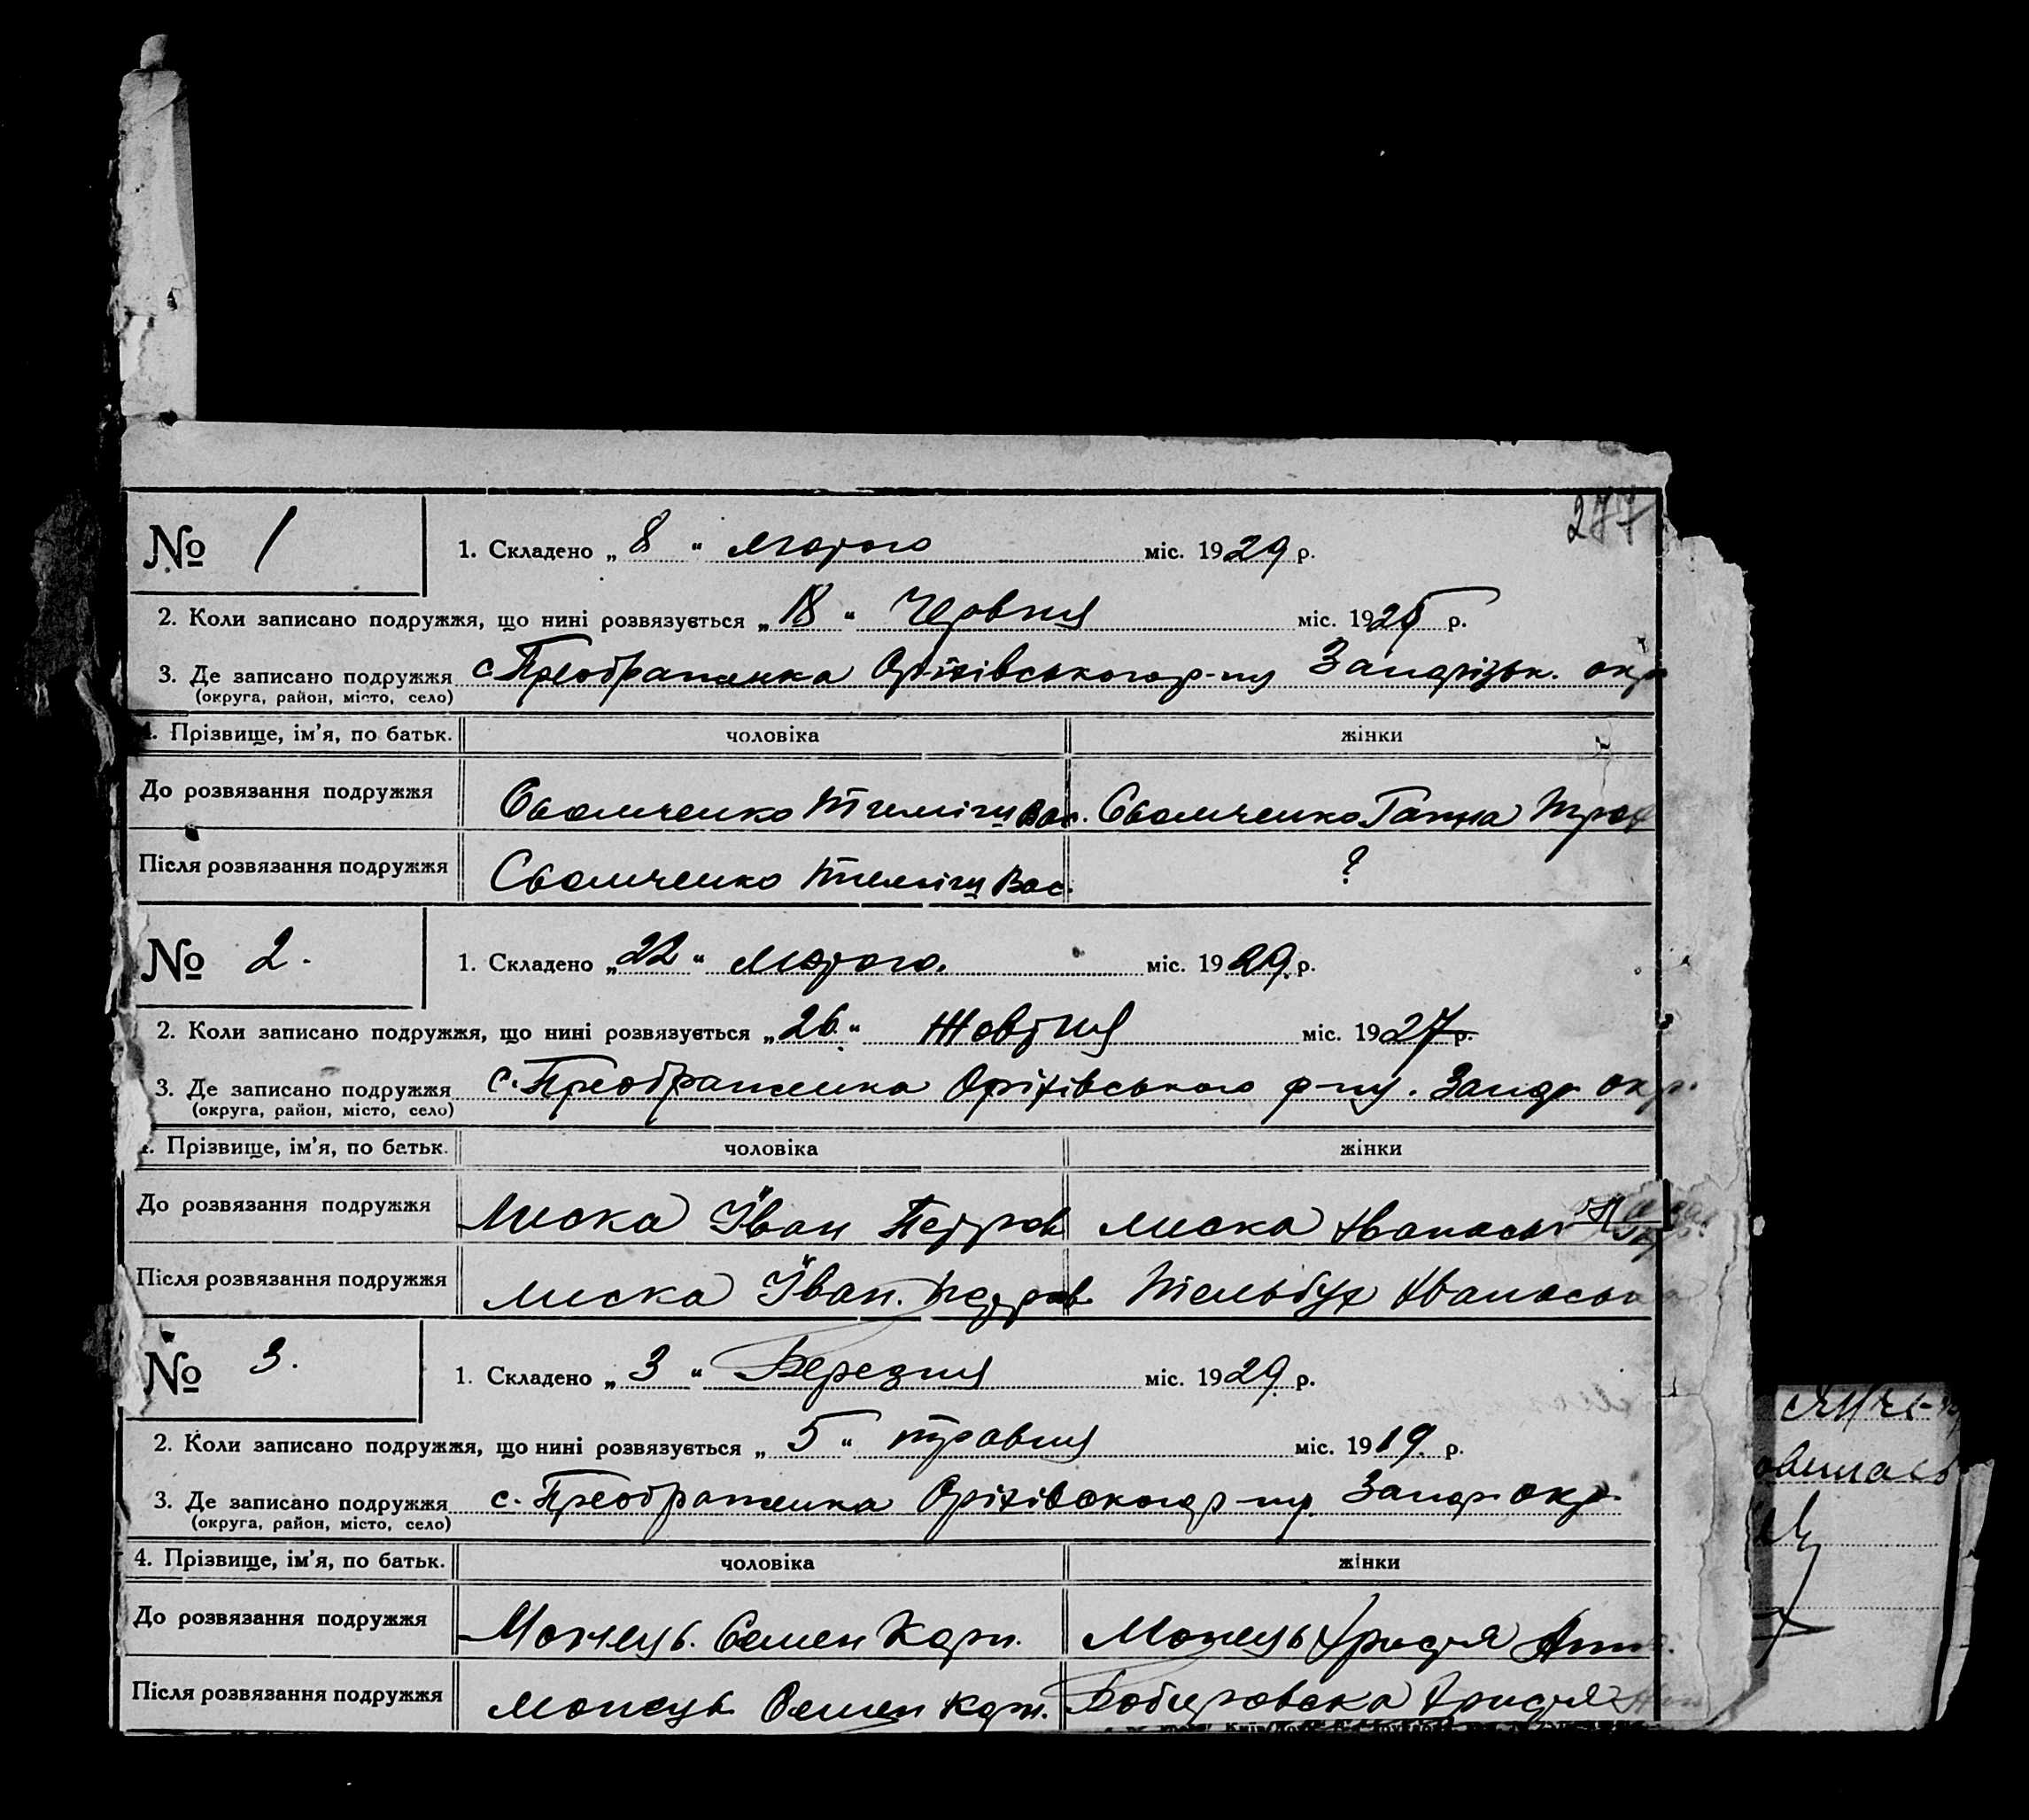 277
№ 1
1. Складено „ 8 “ Лютого міс. 1929 р.
2. Коли записано подружжя, що нині розвязується „ 18 “ Червня міс. 1925 р.
3. Де записано подружжя с. Преображенка Оріхівського р-ну Запорізьк. окр
(округа, район, місто, село)
4. Прізвище, ім’я, по батьк. чоловіка жінки
До розвязання подружжя Сьомченко Вас. Сьомченко Ганна Троф
Після розвязання подружжя Сьомченко Вас. ?
№ 2.
1. Складено „ 22 “ Лютого. міс. 1929. р.
2. Коли записано подружжя, що нині розвязується „ 26. “ Жовтня міс. 1927 р.
3. Де записано подружжя с. Преображенка Оріхівського р-ну. Запор окр.
(округа, район, місто, село)
4. Прізвище, ім’я, по батьк. чоловіка жінки
До розвязання подружжя Лиска Іван Петров Лиска
Після розвязання подружжя Лиска Іван. Петров Тельбух
№ 3.
1. Складено „ 3 “ Березня міс. 1929. р.
2. Коли записано подружжя, що нині розвязується „ 5 “ травня міс. 1919. р.
3. Де записано подружжя с. Преображенка Оріхівського р-ну Запор. окр.
(округа, район, місто, село)
4. Прізвище, ім’я, по батьк. чоловіка жінки
До розвязання подружжя Семен Карп.
Після розвязання подружжя Семен Карп.